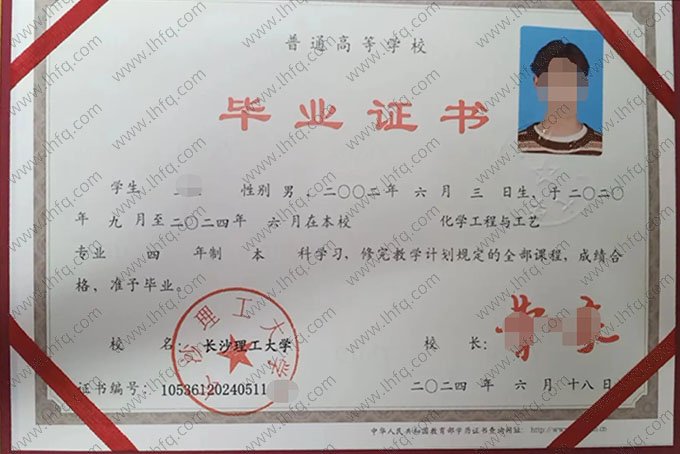 普通高等学校
毕业证书
学生 性别 男，二〇〇二年 六 月 三 日生，于二〇二〇
年 九 月至二〇二四年 六月在本校 化学工程与工艺
专业 四 年制 本 科学习，修完教学计划规定的全部课程，成绩合
格，准予毕业。
校 名：长沙理工大学 校 长：
长沙理工大学
证书编号：10536120240511 二〇二四 年 六 月 十八 日
中华人民共和国教育部学历证书查询网址：http://www.
www.lhfq.com